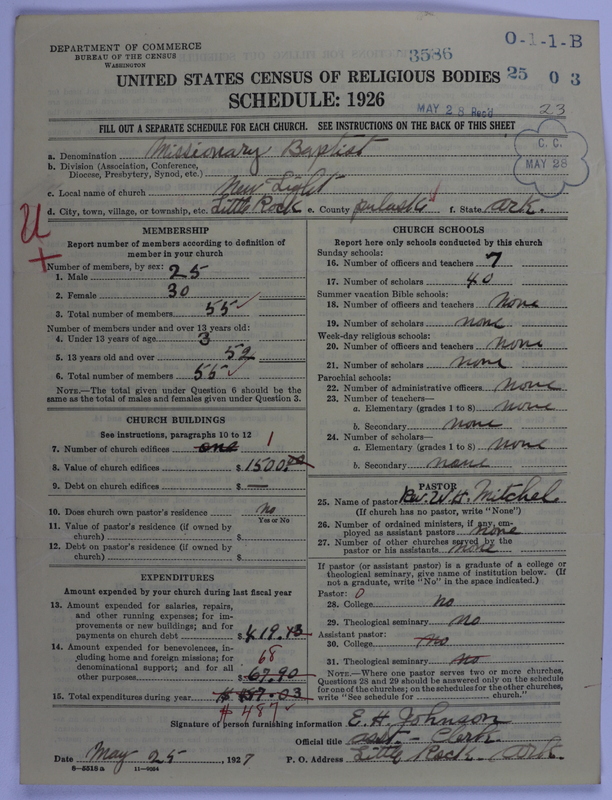 DEPARTMENT OF COMMERCE
BUREAU OF THE CENSUS
WASHINGTON
3586
O-1-1-B
UNITED STATES CENSUS OF RELIGIOUS BODIES
25 0 3
SCHEDULE: 1926
MAY 28 Rec'd
23
FILL OUT A SEPARATE SCHEDULE FOR EACH CHURCH. SEE INSTRUCTIONS ON THE BACK OF THIS SHEET
C. C.
MAY 28
a. Denomination Missionary Baptist
b. Division (Association, Conference, Diocese, Presbytery, Synod, etc.)
c. Local name of church New Light
d. City, town, village, or township, etc. Little Rock e. County pulaski f. State Ark.
U
+
MEMBERSHIP
Report number of members according to definition of member in your church
Number of members, by sex:
1. Male 25
2. Female 30
3. Total number of members 55 ✓
Number of members under and over 13 years old:
4. Under 13 years of age 3
5. 13 years old and over 52
6. Total number of members 55 ✓
NOTE.—The total given under Question 6 should be the same as the total of males and females given under Question 3.
CHURCH BUILDINGS
See instructions, paragraphs 10 to 12
7. Number of church edifices one 1
8. Value of church edifices $ 1500.00
9. Debt on church edifices $ —
10. Does church own pastor's residence? no
Yes or No
11. Value of pastor's residence (if owned by church) $
12. Debt on pastor's residence (if owned by church) $
EXPENDITURES
Amount expended by your church during last fiscal year
13. Amount expended for salaries, repairs, and other running expenses; for improvements or new buildings; and for payments on church debt $ 419.13
14. Amount expended for benevolences, including home and foreign missions; for denominational support; and for all other purposes $ 67.90
68
15. Total expenditures during year
$ 487 ✓
CHURCH SCHOOLS
Report here only schools conducted by this church
Sunday schools:
16. Number of officers and teachers 7
17. Number of scholars 40
Summer vacation Bible schools:
18. Number of officers and teachers none
19. Number of scholars none
Week-day religious schools:
20. Number of officers and teachers none
21. Number of scholars none
Parochial schools:
22. Number of administrative officers none
23. Number of teachers—
a. Elementary (grades 1 to 8) none
b. Secondary none
24. Number of scholars—
a. Elementary (grades 1 to 8) none
b. Secondary none
PASTOR
25. Name of pastor Rev. W. H. Mitchel
(If church has no pastor, write "None")
26. Number of ordained ministers, if any, employed as assistant pastors none
27. Number of other churches served by the pastor or his assistants none
If pastor (or assistant pastor) is a graduate of a college or theological seminary, give name of institution below. (If not a graduate, write "No" in the space indicated.)
Pastor: 0
28. College no
29. Theological seminary no
Assistant pastor:
30. College no
31. Theological seminary no
NOTE.—Where one pastor serves two or more churches, Questions 28 and 29 should be answered only on the schedule for one of the churches; on the schedules for the other churches, write "See schedule for church."
Signature of person furnishing information E. H. Johnson
Official title asst - Clerk
Date May 25, 1927 P. O. Address Little Rock - Ark.
6—5518a 11—9024